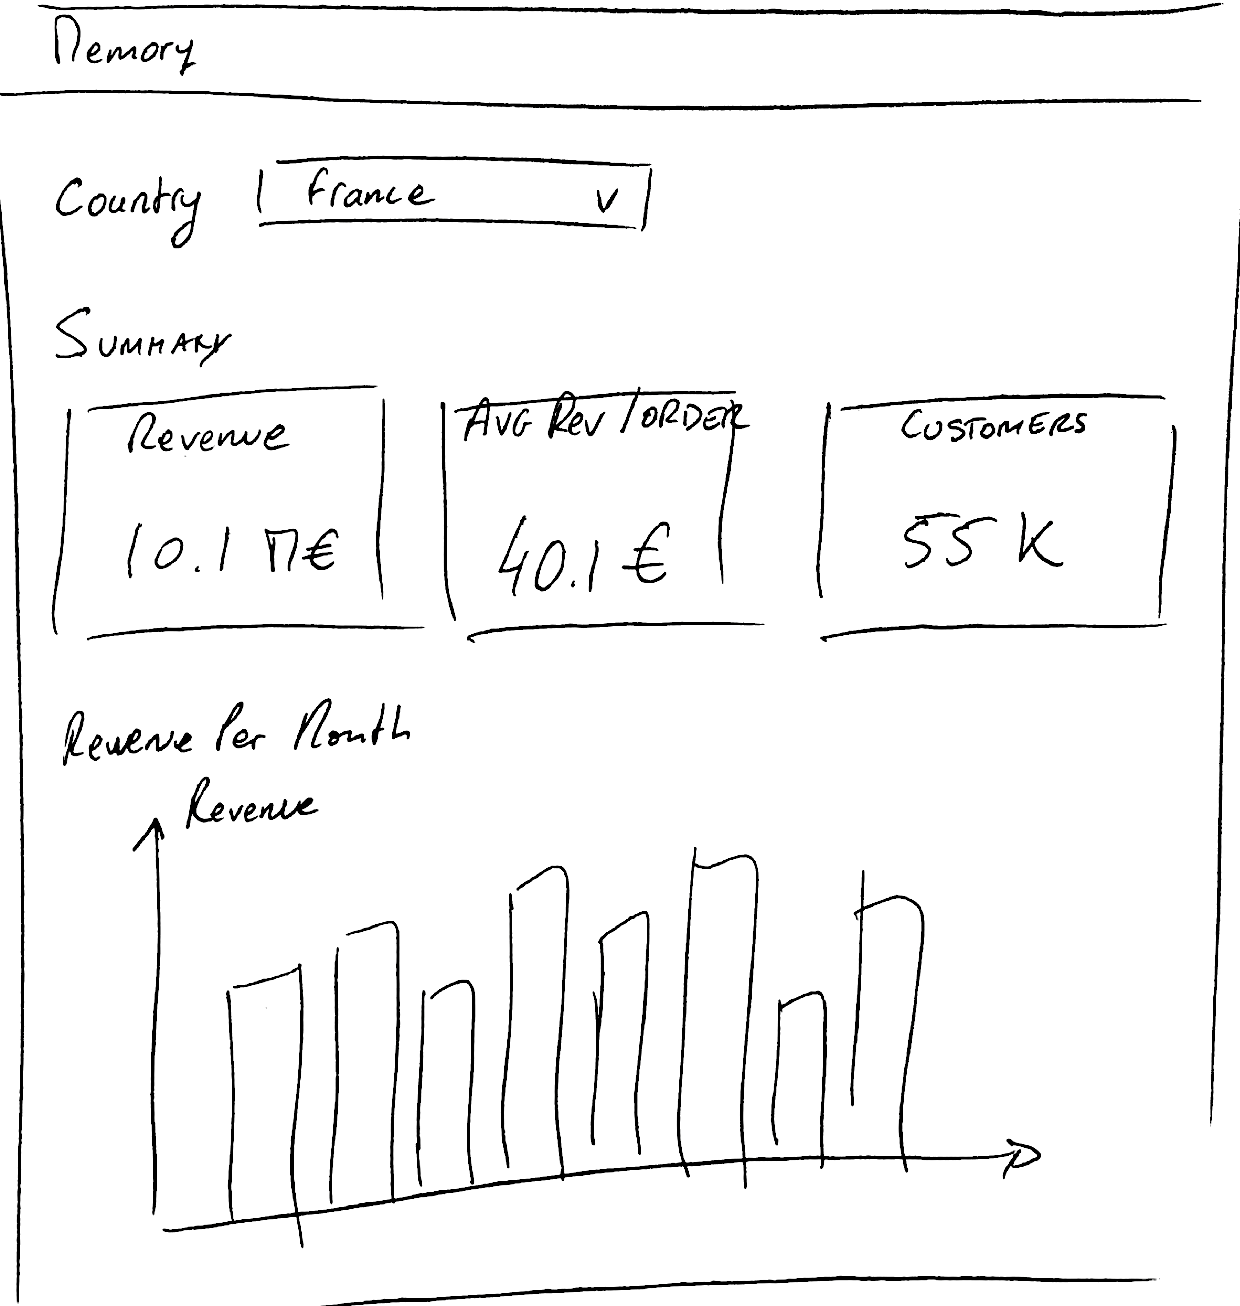 Memory
Country France
SUMMARY
Revenue
10.1 M€
AVG Rev / ORDER
40.1 €
CUSTOMERS
55 K
Revenue Per Month
Revenue